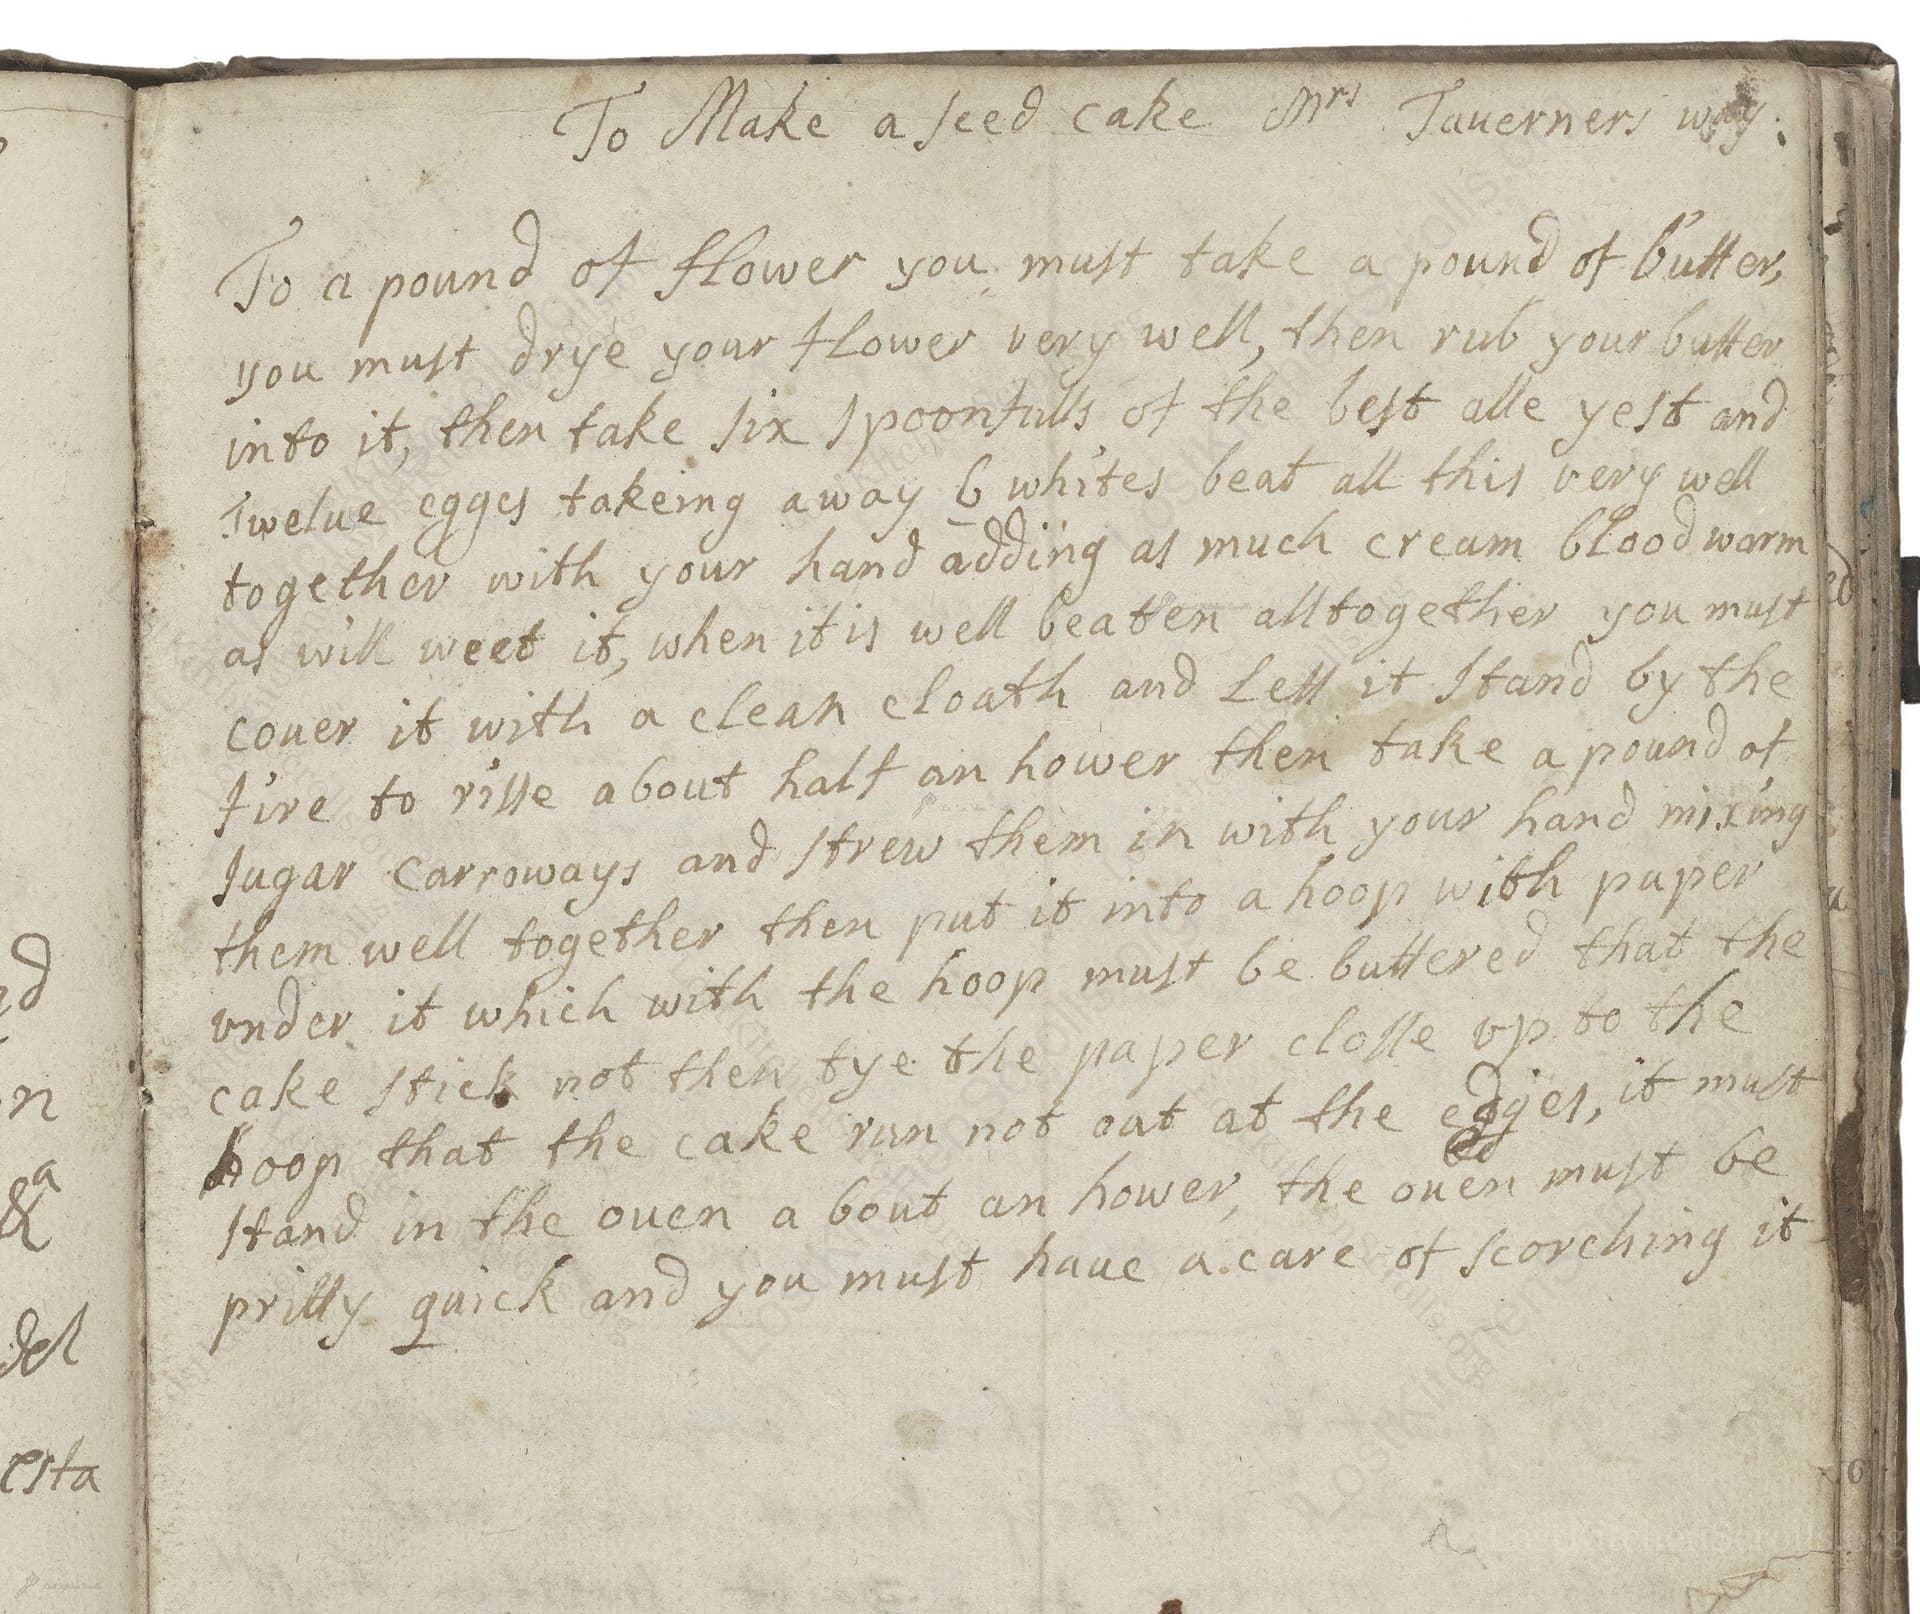 To Make a seed cake Mrs Tauerners way:
To a pound of flower you must take a pound of butter,
you must drye your flower very well, then rub your butter
into it, then take six spoonfulls of the best alle yest and
Twelue egges takeing away 6 whites beat all this very well
together with your hand adding as much cream bloodwarm
as will weet it, when it is well beaten alltogether you must
couer it with a clean cloath and Lett it stand by the
fire to risse about half an hower then take a pound of
sugar Carroways and strew them in with your hand mixing
them well together then put it into a hoop with paper
vnder it which with the hoop must be buttered that the
cake stick not then tye the paper closse vp to the
hoop that the cake run not out at the edges, it must
stand in the ouen a bout an hower, the ouen must be
pritty quick and you must haue a care of scorching it
nd
on
&a
del
esta
LostKitchenScrolls.org